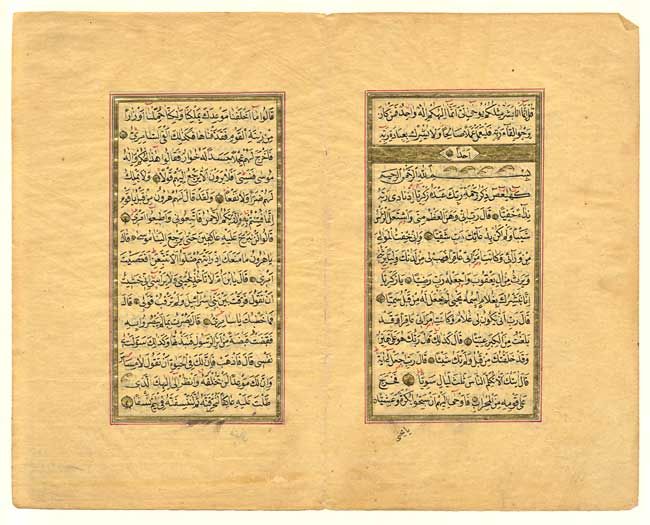 قل إنما أنا بشر مثلكم يوحى إلي أنما إلهكم إله واحد فمن كان
يرجو لقاء ربه فليعمل عملا صالحا ولا يشرك بعبادة ربه
أحدا
بسم الله الرحمن الرحيم
كهيعص ذكر رحمة ربك عبده زكريا إذ نادى ربه
نداء خفيا قال رب إني وهن العظم مني واشتعل الرأس
شيبا ولم أكن بدعائك رب شقيا وإني خفت الموالي
من ورائي وكانت امرأتي عاقرا فهب لي من لدنك وليا يرثني
ويرث من آل يعقوب واجعله رب رضيا يا زكريا
إنا نبشرك بغلام اسمه يحيى لم نجعل له من قبل سميا
قال رب أنى يكون لي غلام وكانت امرأتي عاقرا وقد
بلغت من الكبر عتيا قال كذلك قال ربك هو علي هين
وقد خلقتك من قبل ولم تك شيئا قال رب اجعل لي آية
قال آيتك ألا تكلم الناس ثلاث ليال سويا فخرج
على قومه من المحراب فأوحى إليهم أن سبحوا بكرة وعشيا
يا يحيى
قالوا ما أخلفنا موعدك بملكنا ولكنا حملنا أوزارا
من زينة القوم فقذفناها فكذلك ألقى السامري
فأخرج لهم عجلا جسدا له خوار فقالوا هذا إلهكم وإله
موسى فنسي أفلا يرون ألا يرجع إليهم قولا ولا يملك
لهم ضرا ولا نفعا ولقد قال لهم هارون من قبل يا قوم
إنما فتنتم به وإن ربكم الرحمن فاتبعوني وأطيعوا أمري
قالوا لن نبرح عليه عاكفين حتى يرجع إلينا موسى قال
يا هارون ما منعك إذ رأيتهم ضلوا ألا تتبعن أفعصيت
أمري قال يا ابن أم لا تأخذ بلحيتي ولا برأسي إني خشيت
أن تقول فرقت بين بني إسرائيل ولم ترقب قولي قال
فما خطبك يا سامري قال بصرت بما لم يبصروا به
فقبضت قبضة من أثر الرسول فنبذتها وكذلك سولت لي
نفسي قال فاذهب فإن لك في الحياة أن تقول لا مساس
وإن لك موعدا لن تخلفه وانظر إلى إلهك الذي
ظلت عليه عاكفا لنحرقنه ثم لننسفنه في اليم نسفا